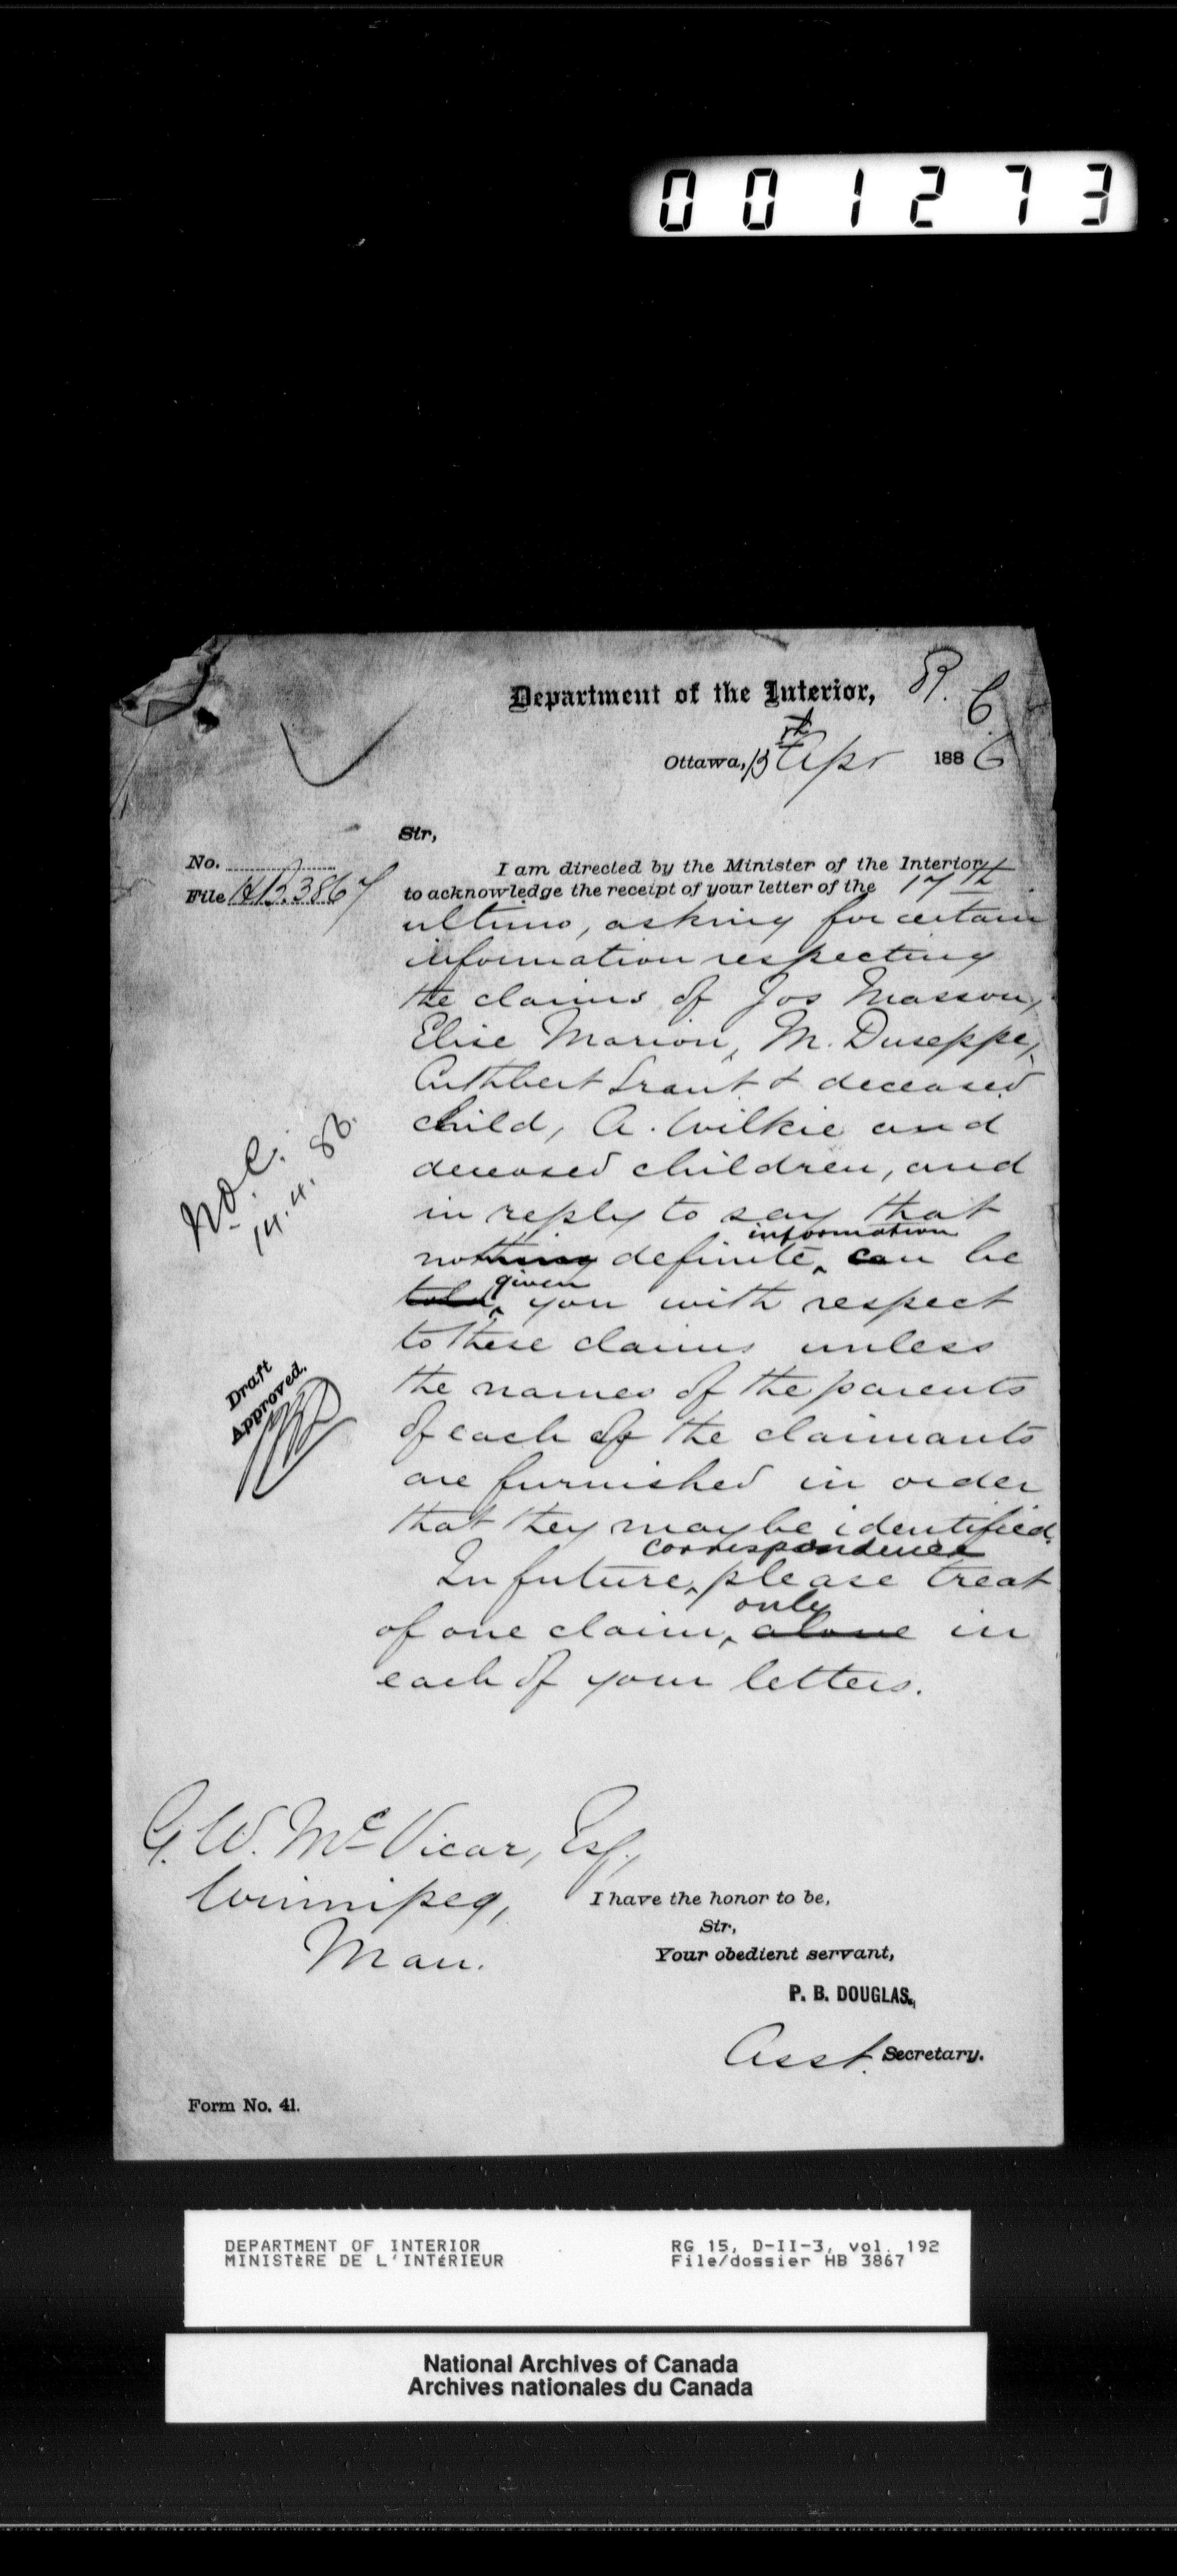 001273
Department of the Interior,
R. 6
Ottawa, 13th Apr 1886
Sir,
No.
File HB.3867
I am directed by the Minister of the Interior,
to acknowledge the receipt of your letter of the 17th
ultimo, asking for certain
information respecting
the claims of Jos Masson,
Elise Marion, M. Duseppe,
Cuthbert Grant & deceased
child, A. Wilkie and
deceased children, and
in reply to say that
information
nothing definite, can be
given
told, you with respect
to these claims unless
the names of the parents
of each of the claimants
are furnished in order
that they may be identified.
correspondence
In future, please treat
only
of one claim, alone in
each of your letters.
14.4.86.
Draft
Approved.
G. W. McVicar, Esq.,
Winnipeg,
Man.
I have the honor to be,
Sir,
Your obedient servant,
P. B. DOUGLAS.,
Asst. Secretary.
Form No. 41.
DEPARTMENT OF INTERIOR
MINISTÈRE DE L'INTÉRIEUR
RG 15, D-II-3, vol. 192
File/dossier HB 3867
National Archives of Canada
Archives nationales du Canada